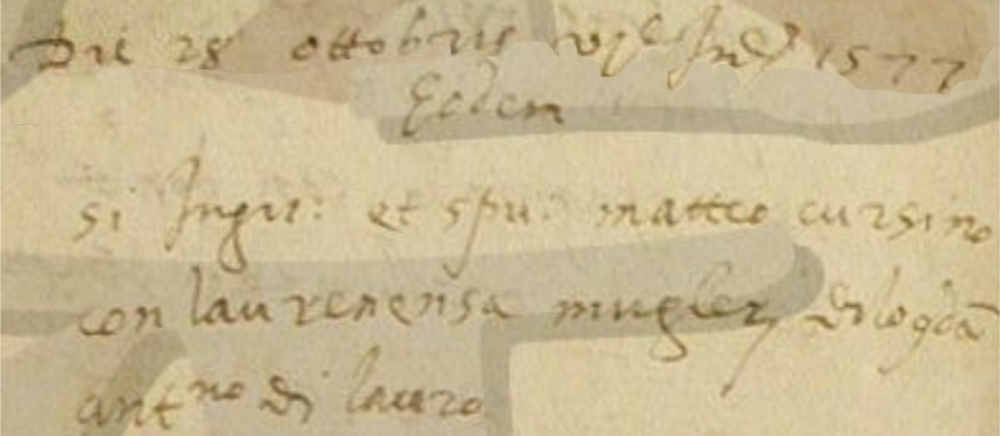 Die 28 ottobris vjᵉ Ind 1577
Eodem
si Ingu: et spu: matteo cursino
con laurenensa muglerj di lo qda
antno di lauro